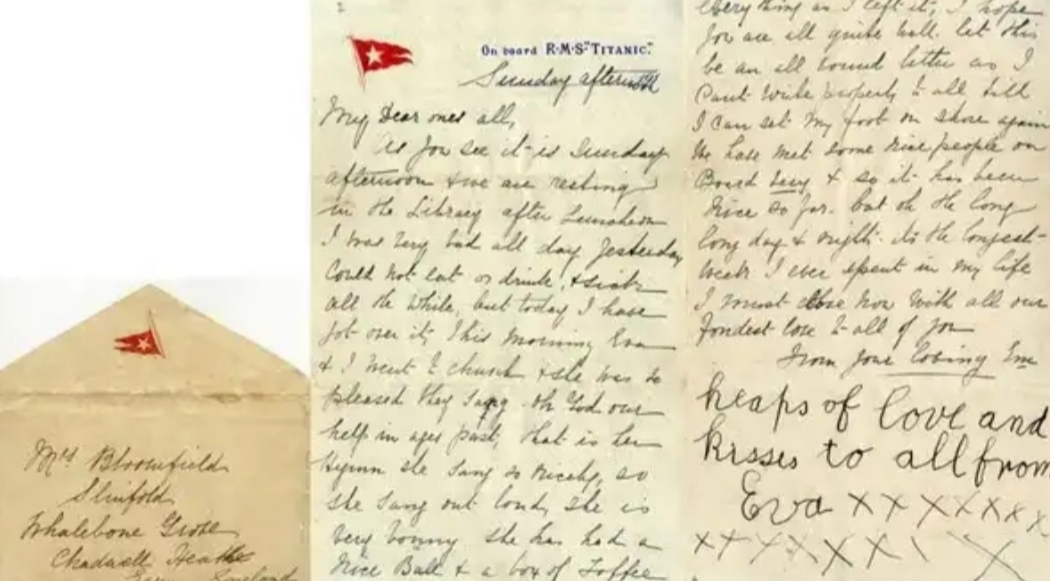 Mrs Bloomfield
Slinfold
Whalebone Grove
Chadwell Heath
Essex England
2
On board R·M·S "TITANIC."
Sunday afternoon
My Dear ones all,
As you see it is Sunday
afternoon & we are resting
in the Library after Luncheon
I was very bad all day Yesterday
Could not eat or drink, & sick
all the while, but today I have
got over it, This Morning Eva
& I went to church & she was so
pleased they sang Oh God our
help in ages past, that is her
Hymn she sang so nicely, so
she sang out loud, she is
very bonny she has had a
Nice Ball & a box of Toffee
everything as I left it, I hope
you are all quite well. let this
be an all round letter as I
Cant write properly to all till
I can set My foot on shore again
We have met some nice people on
Board Lucy & so it has been
Nice so far. but oh the long
long day & nights its the longest
Week I ever spent in My life
I must close now with all our
fondest love to all of you
from your loving Em
heaps of love and
kisses to all from
Eva x x x x x x x
x x x x x x x x x